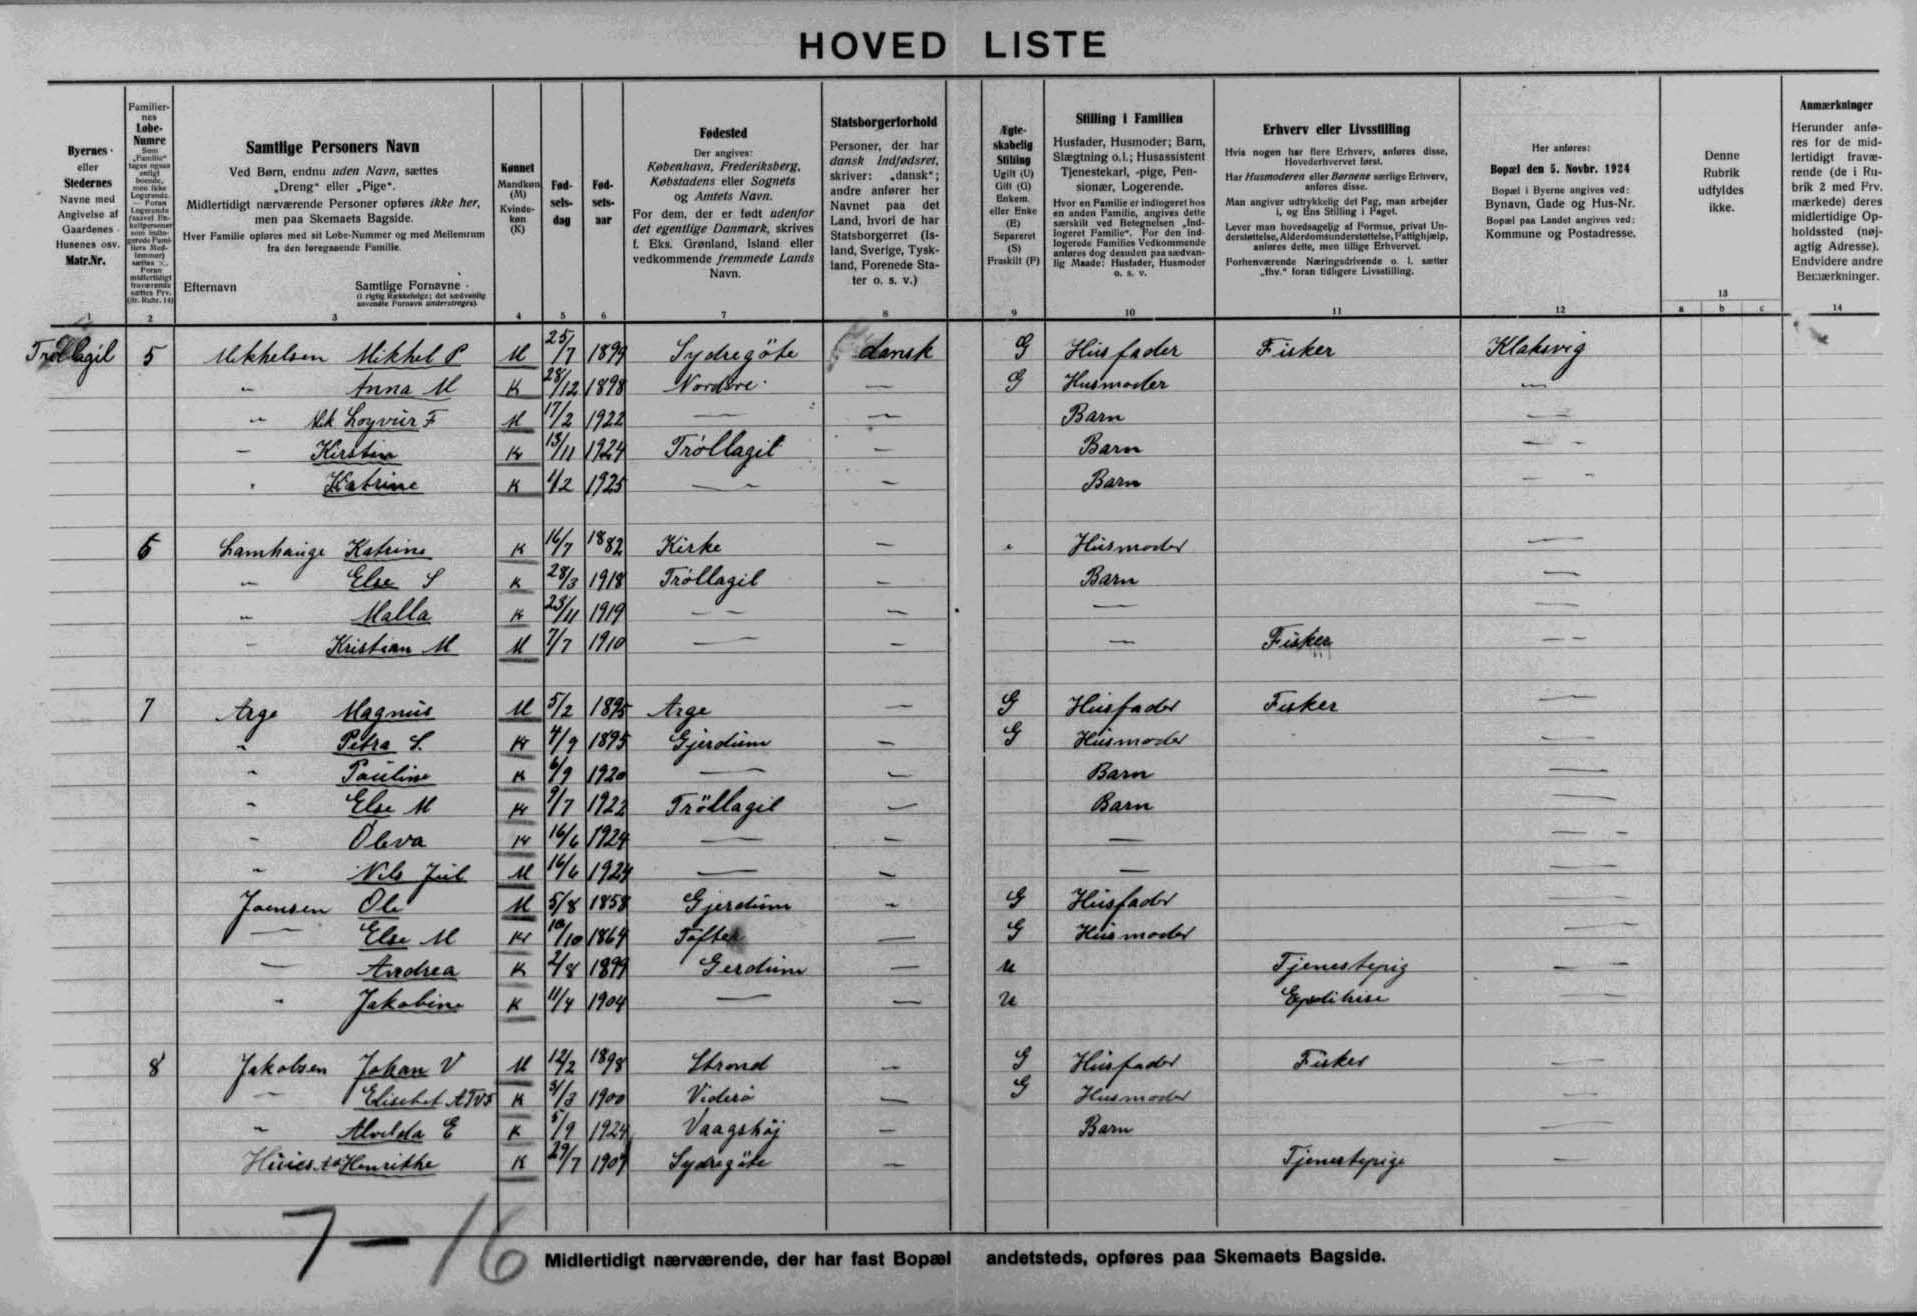 HOVED LISTE
Byernes
eller
Stedernes
Navne med
Angivelse af
Gaardenes
Husenes osv.
Matr.Nr.
1
Familier-
nes
Løbe-
Numre
2
Samtlige Personers Navn
Ved Børn, endnu uden Navn, sættes
„Dreng“ eller „Pige“.
Midlertidigt nærværende Personer opføres ikke her,
men paa Skemaets Bagside.
Hver Familie opføres med sit Løbe-Nummer og med Mellemrum
fra den foregaaende Familie.
Efternavn
Samtlige Fornavne
(i rigtig Rækkefølge; det sædvanlig
anvendte Fornavn understreges).
3
Kønnet
Mandkøn
(M)
Kvinde-
køn
(K)
4
Fød-
sels-
dag
5
Fød-
sels-
aar
6
Fødested
Der angives:
København, Frederiksberg,
Købstadens eller Sognets
og Amtets Navn.
For dem, der er født udenfor
det egentlige Danmark, skrives
f. Eks. Grønland, Island eller
vedkommende fremmede Lands
Navn.
7
Statsborgerforhold
Personer, der har
dansk Indfødsret,
skriver: „dansk“;
andre anfører her
Navnet paa det
Land, hvori de har
Statsborgerret (Is-
land, Sverige, Tysk-
land, Forenede Sta-
ter o. s. v.)
8
Ægte-
skabelig
Stilling
Ugift (U)
Gift (G)
Enkem.
eller Enke
(E)
Separeret
(S)
Fraskilt (F)
9
Stilling i Familien
Husfader, Husmoder; Barn,
Slægtning o.l.; Husassistent
Tjenestekarl, -pige, Pen-
sionær, Logerende.
Hvor en Familie er indlogeret hos
en anden Familie, angives dette
særskilt ved Betegnelsen „Ind-
logeret Familie“. For den ind-
logerede Families Vedkommende
anføres dog desuden paa sædvan-
lig Maade: Husfader, Husmoder
o. s. v.
10
Erhverv eller Livsstilling
Hvis nogen har flere Erhverv, anføres disse,
Hovederhvervet først.
Har Husmoderen eller Børnene særlige Erhverv,
anføres disse.
Man angiver udtrykkelig det Fag, man arbejder
i, og Ens Stilling i Faget.
Lever man hovedsagelig af Formue, privat Un-
derstøttelse, Alderdomsunderstøttelse, Fattighjælp,
anføres dette, men tillige Erhvervet.
Forhenværende Næringsdrivende o. l. sætter
„fhv.“ foran tidligere Livsstilling.
11
Her anføres:
Bopæl den 5. Novbr. 1924
Bopæl i Byerne angives ved:
Bynavn, Gade og Hus-Nr.
Bopæl paa Landet angives ved:
Kommune og Postadresse.
12
Denne
Rubrik
udfyldes
ikke.
13
a b c
Anmærkninger
Herunder anfø-
res for de mid-
lertidigt fravæ-
rende (de i Ru-
brik 2 med Frv.
mærkede) deres
midlertidige Op-
holdssted (nøj-
agtig Adresse).
Endvidere andre
Bemærkninger.
14
Trøllagil 5 Mikkelsen Mikkel P M 25/7 1899 Sydregöte dansk G Husfader Fisker Klaksvig
" Anna M K 28/12 1898 Nordöre — G Husmoder —
" Loyvur F M 17/2 1922 — — Barn —
" Kirstin K 13/11 1924 Tröllagil — Barn —
" Katrine K 1/2 1925 — — Barn —
6 Lamhauge Katrine K 16/7 1882 Kirke — Husmoder —
" Else S K 28/3 1918 Tröllagil — Barn —
" Malla K 23/11 1919 — — — —
" Kristian M M 7/7 1910 — — — Fisker —
7 Arge Magnus M 5/2 1895 Arge — G Husfader Fisker —
" Petra S. K 4/9 1895 Gjerdum — G Husmoder —
" Pauline K 6/9 1920 — — Barn —
" Else M K 9/7 1922 Tröllagil — Barn —
" Oleva K 16/6 1924 — — — —
" Nils Juul M 16/6 1924 — — — —
Joensen Ole M 5/8 1858 Gjerdum — G Husfader —
— Else M K 10/10 1864 Tofter — G Husmoder —
— Andrea K 2/8 1899 Gerdum — u Tjenestepig —
" Jakobine K 11/4 1904 — — u —
8 Jakobsen Johan V M 12/2 1898 Strond — G Husfader Fisker —
— Elisebet K 31/3 1900 Viderö — G Husmoder —
" Alvilda E K 5/9 1924 Vaagshöj — Barn —
Henrikke K 29/7 1907 Sydregöte — Tjenestepige —
7 — 16
Midlertidigt nærværende, der har fast Bopæl andetsteds, opføres paa Skemaets Bagside.